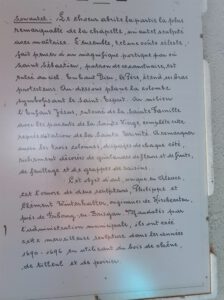 Le chœur abrite la partie la plus
remarquable de la chapelle, un autel sculpté
avec maîtrise. L'ensemble, tel une voûte céleste,
fait penser à un magnifique portique dont
Saint Sébastien, patron de
est
Dieu, le Père, étend ses bras
protecteurs. Au dessous plane la colombe
symbolisant le Saint Esprit. Au milieu
l'Enfant Jésus, entouré de la Sainte Famille
avec les parents de la Vierge, complète cette
représentation de la Sainte Trinité. A remarquer
aussi les trois colonnes, disposées de chaque côté,
richement décorées de guirlandes de fleurs et de fruits,
de feuillage et de grappes de raisins.
Cet objet d'art, unique en Alsace,
est l'œuvre de deux sculpteurs, Philippe et
Clément Winterhalter, originaires de Kirchzarten,
près de Fribourg, en Brisgau. Mandatés par
l'administration municipale, ils ont créé
cette merveilleuse sculpture dans les années
1690-1696 en utilisant du bois de chêne,
de tilleul et de poirier.